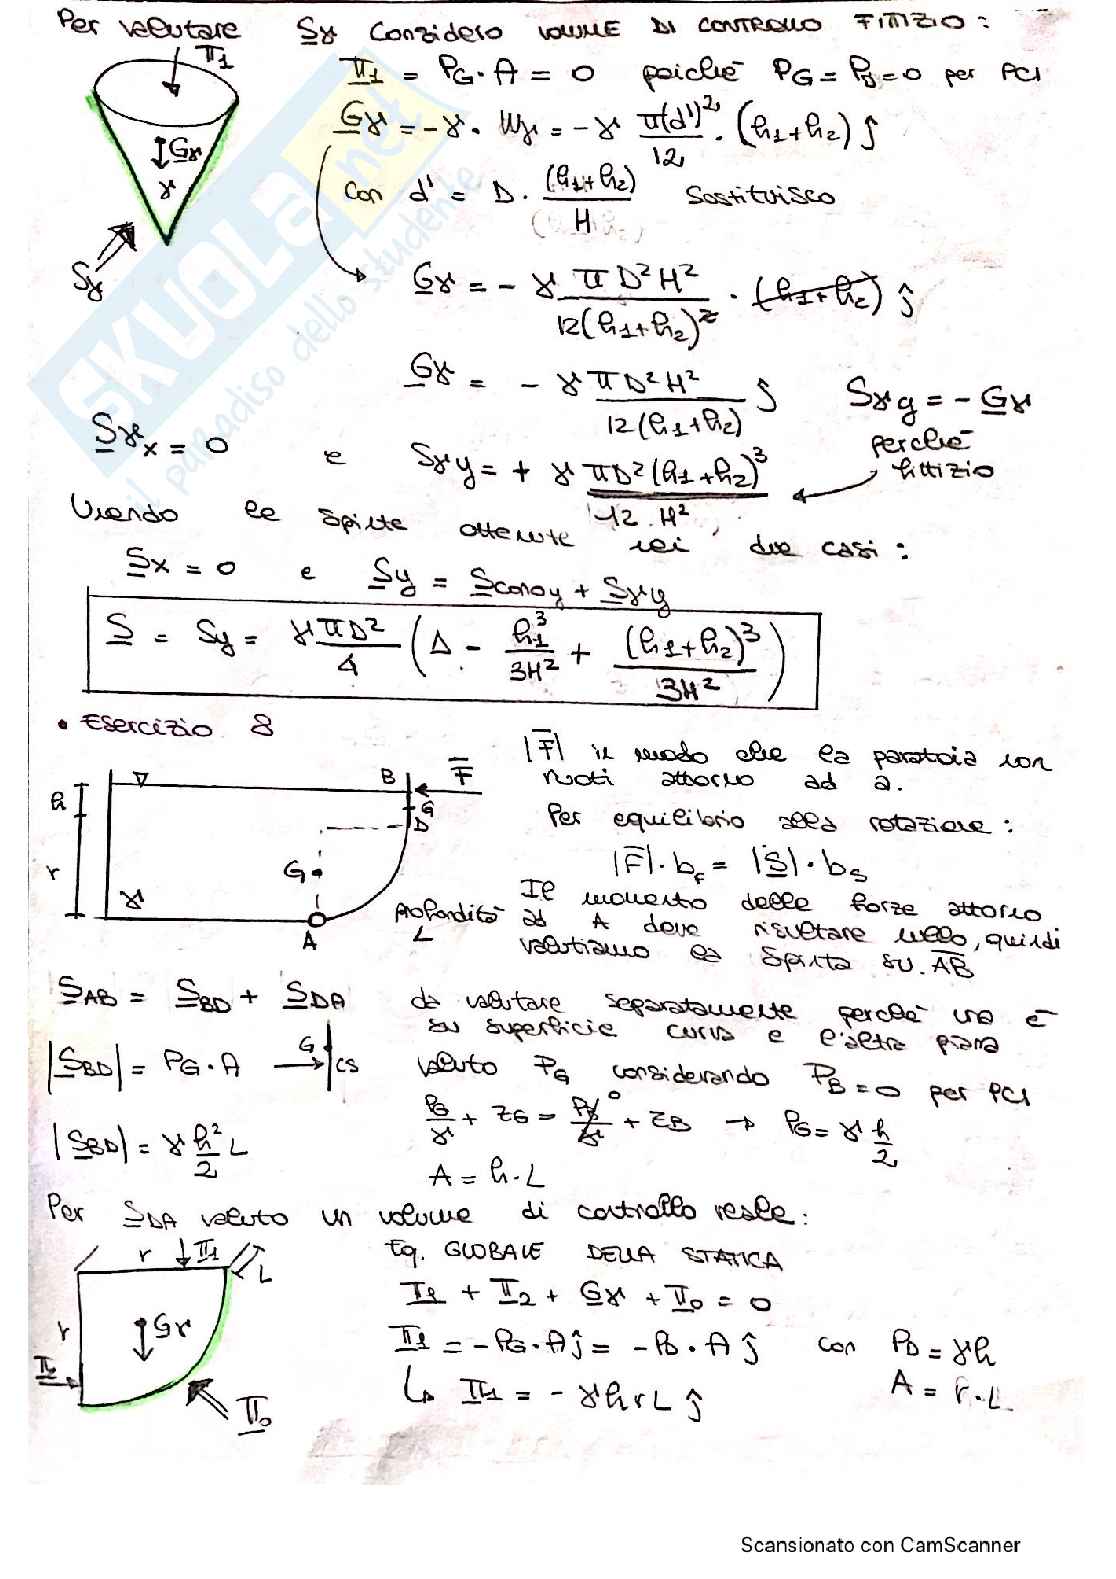 Per valutare Sγ considero VOLUME DI CONTROLLO FITTIZIO:
Π1 = PG · A = 0 poichè PG = PB = 0 per PCI
Gγ = -γ · Wγ = -γ π(d')²/12 · (h1+h2) ĵ
con d' = D · (h1+h2)/H Sostituisco
Gγ = -γ πD²H²/12(h1+h2)² · (h1+h2) ĵ
Gγ = -γ πD²H²/12(h1+h2) ĵ Sγy = -Gγ
perchè fittizio
Sγx = 0 e Sγy = +γ πD²(h1+h2)³/12·H²
Unendo le spinte ottenute nei due casi:
Sx = 0 e Sy = Sconoy + Sγy
S = Sy = γ πD²/4 (Δ - h1³/3H² + (h1+h2)³/3H²)
Π1
Gγ
γ
Sγ
SKUOLA.net
il paradiso dello studente
• Esercizio 8
|F| in modo che la paratoia non
ruoti attorno ad a.
Per equilibrio alla rotazione:
|F| · bF = |S| · bS
Il momento delle forze attorno
ad A deve risultare nullo, quindi
valutiamo la spinta su AB
h
r
γ
B
F
G
D
G
A
Profondità
L
SAB = SBD + SDA da valutare separatamente perchè una è
su superficie curva e l'altra piana
|SBD| = PG · A G CS valuto PG considerando PB = 0 per PCI
PG/γ + ZG = PB/γ 0 + ZB → PG = γ h/2
|SBD| = γ h²/2 L
A = h · L
Per SDA valuto un volume di controllo reale:
Eq. GLOBALE DELLA STATICA
Π1 + Π2 + Gγ + Π0 = 0
Π1 = -PG · A ĵ = -PD · A ĵ con PD = γh
↳ Π1 = -γhrL ĵ A = r · L
r
Π1
L
r
Gγ
Π2
Π0
Scansionato con CamScanner